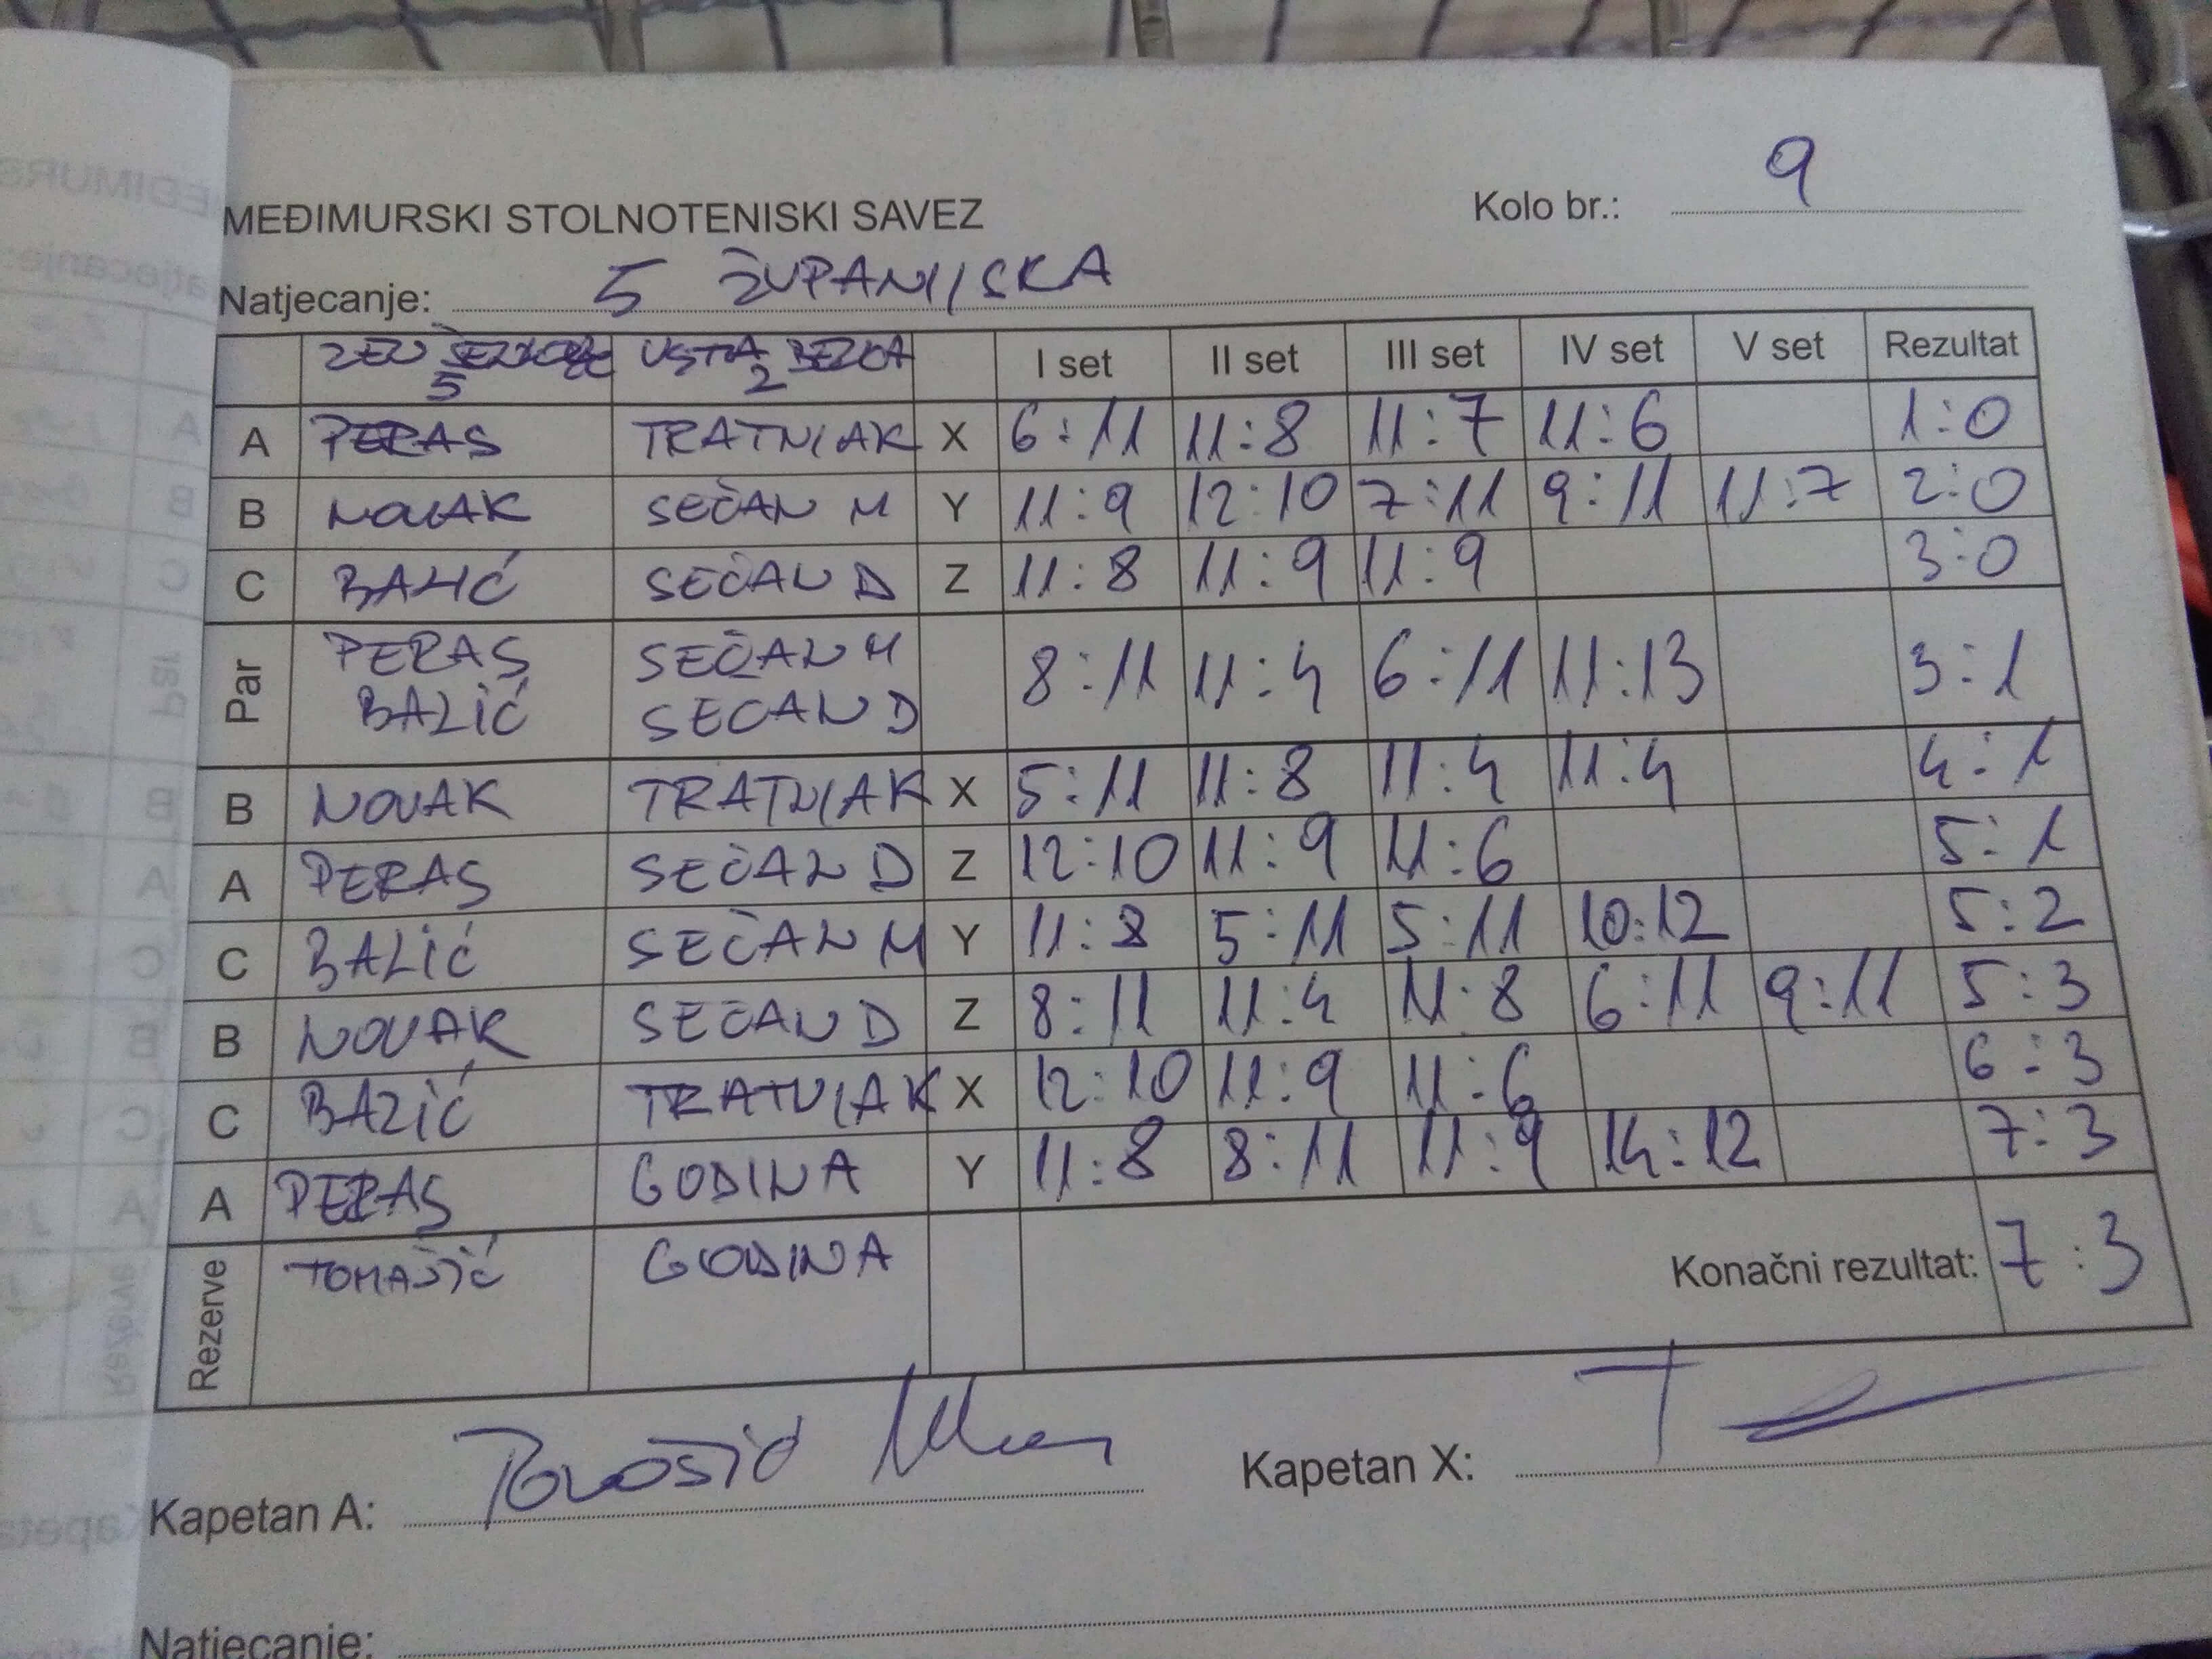 MEĐIMURSKI STOLNOTENISKI SAVEZ Kolo br.: 9
Natjecanje: 5 ŽUPANIJSKA
I set II set III set IV set V set Rezultat
5 2
A PERAS TRATNJAK X 6:11 11:8 11:7 11:6 1:0
B NOVAK SEČAN M Y 11:9 12:10 7:11 9:11 11:7 2:0
C BALIĆ SEČAN D Z 11:8 11:9 11:9 3:0
Par PERAS BALIĆ SEČAN M SEČAN D 8:11 11:4 6:11 11:13 3:1
B NOVAK TRATNJAK X 5:11 11:8 11:4 11:4 4:1
A PERAS SEČAN D Z 12:10 11:9 11:6 5:1
C BALIĆ SEČAN M Y 11:8 5:11 5:11 10:12 5:2
B NOVAK SEČAN D Z 8:11 11:4 11:8 6:11 9:11 5:3
C BALIĆ TRATNJAK X 12:10 11:9 11:6 6:3
A PERAS GODINA Y 11:8 8:11 11:9 14:12 7:3
Rezerve TOMAŠIĆ GODINA Konačni rezultat: 7:3
Kapetan A: Kapetan X:
Natjecanje: